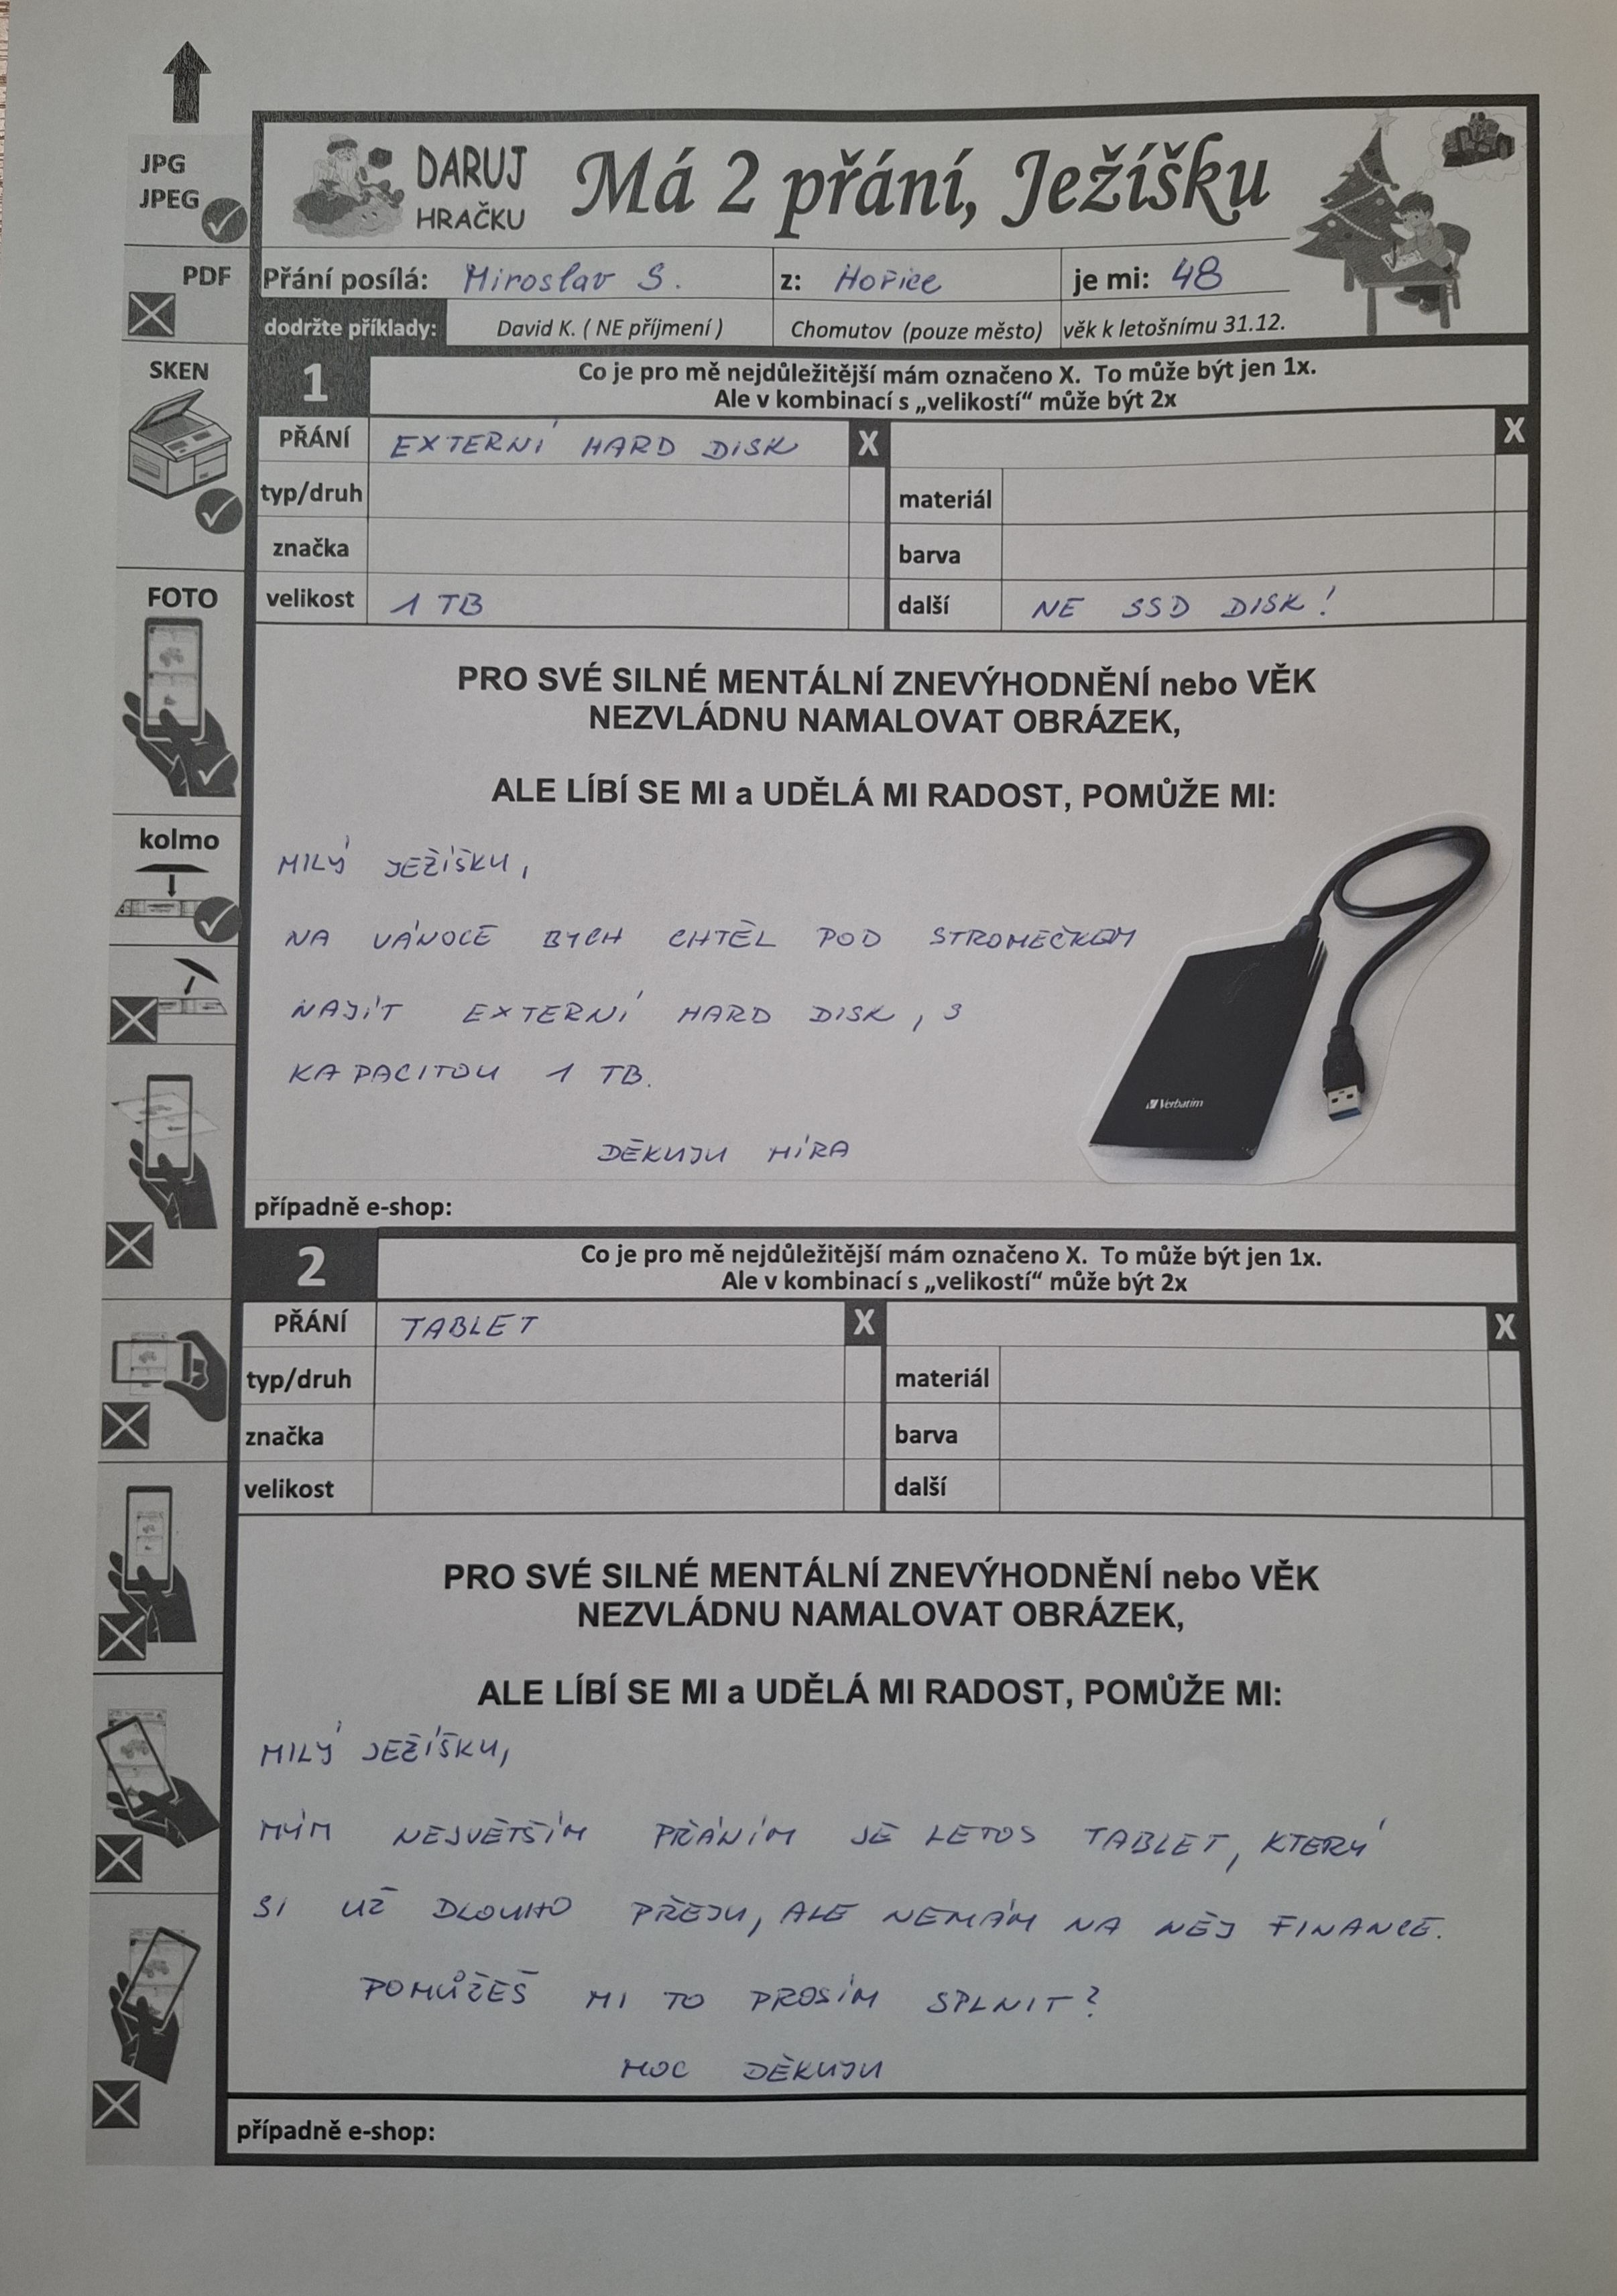 JPG
JPEG
PDF
SKEN
FOTO
kolmo
DARUJ
HRAČKU
Má 2 přání, Ježíšku
Přání posílá: Miroslav S. z: Hořice je mi: 48
dodržte příklady: David K. ( NE příjmení ) Chomutov (pouze město) věk k letošnímu 31.12.
1
Co je pro mě nejdůležitější mám označeno X. To může být jen 1x.
Ale v kombinací s „velikostí“ může být 2x
PŘÁNÍ EXTERNÍ HARD DISK X X
typ/druh materiál
značka barva
velikost 1 TB další NE SSD DISK!
PRO SVÉ SILNÉ MENTÁLNÍ ZNEVÝHODNĚNÍ nebo VĚK
NEZVLÁDNU NAMALOVAT OBRÁZEK,
ALE LÍBÍ SE MI a UDĚLÁ MI RADOST, POMŮŽE MI:
MILÝ JEŽÍŠKU,
NA VÁNOCE BYCH CHTĚL POD STROMEČKEM
NAJÍT EXTERNÍ HARD DISK, S
KAPACITOU 1 TB.
DĚKUJU MÍRA
Verbatim
případně e-shop:
2
Co je pro mě nejdůležitější mám označeno X. To může být jen 1x.
Ale v kombinací s „velikostí“ může být 2x
PŘÁNÍ TABLET X X
typ/druh materiál
značka barva
velikost další
PRO SVÉ SILNÉ MENTÁLNÍ ZNEVÝHODNĚNÍ nebo VĚK
NEZVLÁDNU NAMALOVAT OBRÁZEK,
ALE LÍBÍ SE MI a UDĚLÁ MI RADOST, POMŮŽE MI:
MILÝ JEŽÍŠKU,
MÝM NEJVĚTŠÍM PŘÁNÍM JE LETOS TABLET, KTERÝ
SI UŽ DLOUHO PŘEJU, ALE NEMÁM NA NĚJ FINANCE.
POMŮŽEŠ MI TO PROSÍM SPLNIT?
MOC DĚKUJU
případně e-shop: